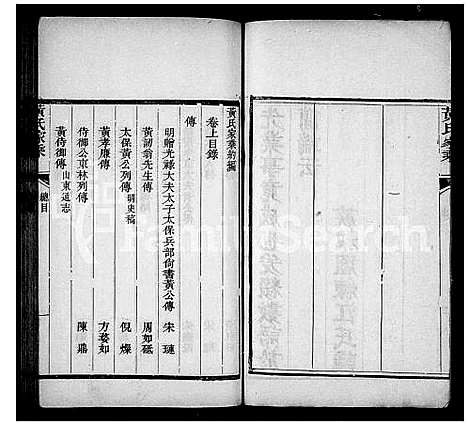 黃氏家乘
黃氏家乘續編
卷上目錄
傳
明贈光祿大夫太子太保兵部尚書黃公傳 朱璉
黃訒翁先生傳 周如砥
太保黃公列傳 明史稿 倪燦
黃孝廉傳 方婺如
侍御公東林列傳 陳鼎
黃侍御傳 山東通志
黃氏家乘 總目
FamilySearch